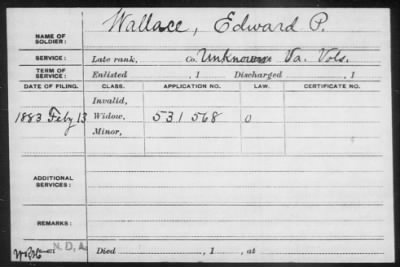 Wallace, Edward P.
NAME OF SOLDIER:
SERVICE: Late rank, Co. Unknown Va. Vols.
TERM OF SERVICE: Enlisted , 1 Discharged , 1
DATE OF FILING. CLASS. APPLICATION NO. LAW. CERTIFICATE NO.
Invalid,
1883 Feby 13 Widow, 531568 O
Minor,
ADDITIONAL SERVICES:
REMARKS:
N.D.A.
Died , 1 , at